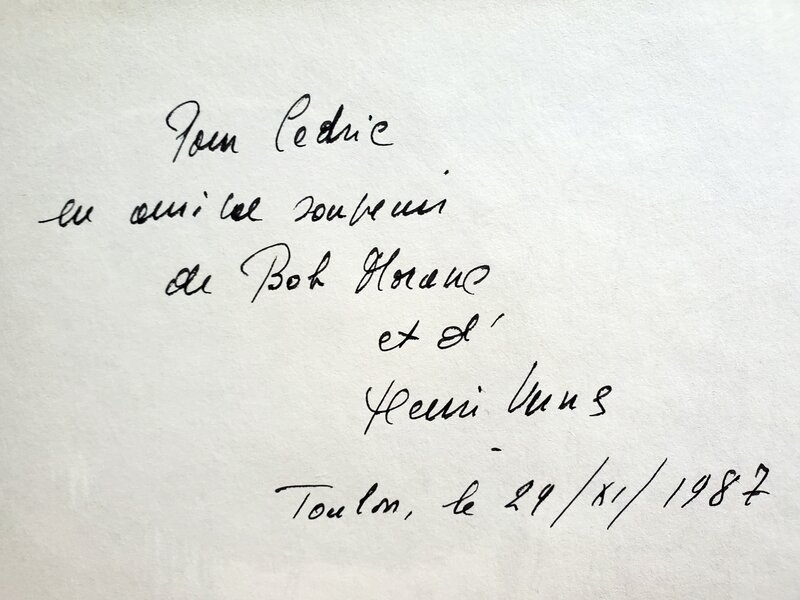 Pour Cedric
en amical souvenir
de Bob Morane
et d'
Henri Vernes
Toulon, le 29/XI/1987